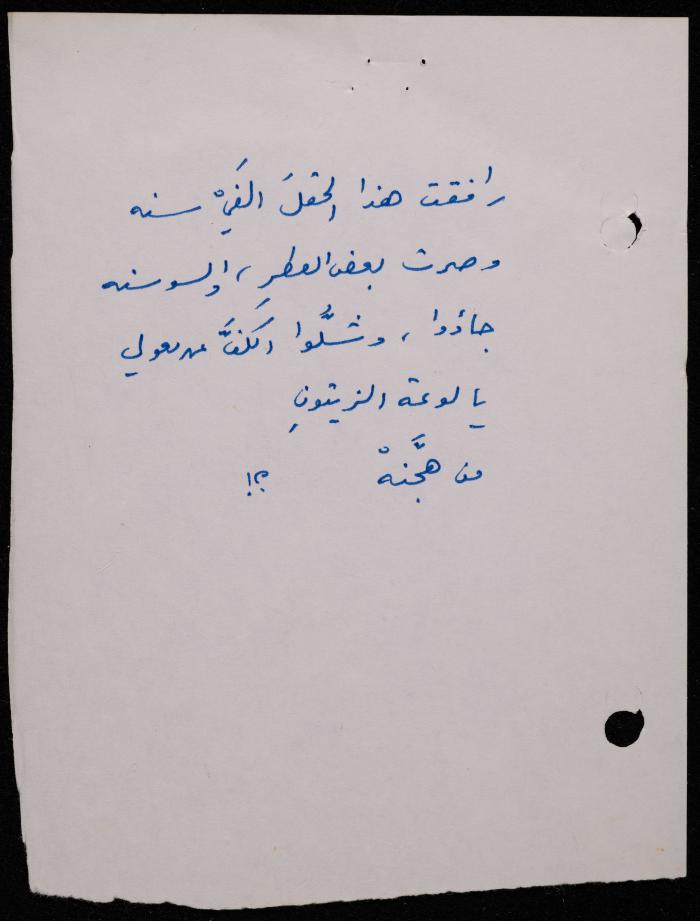 رافقت هذا الحقلَ الفَيْ سنه
وصرت بعض العطرِ ، والسوسنه
جاؤوا ، وشلُّوا الكفَّ عن معولي
يا لوعة الزيتونِ
من هجَّنهْ ؟!